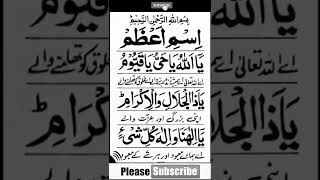 بسم الله الرحمن الرحیم
اِسمِ اَعظَمْ
یَا اَللّٰهُ یَاحَیُّ یَا قَیُّوْمُ
اے اللہ تعالیٰ اے
یَاذَاالْجَلَالِ وَالْاِکْرَامِ
اے بزرگی اور عزت والے
یَااِلٰهَنَا وَاِلٰهَ کُلِّ شَیْءٍ
اے ہمارے معبود اور ہر شے کے معبود
Please Subscribe